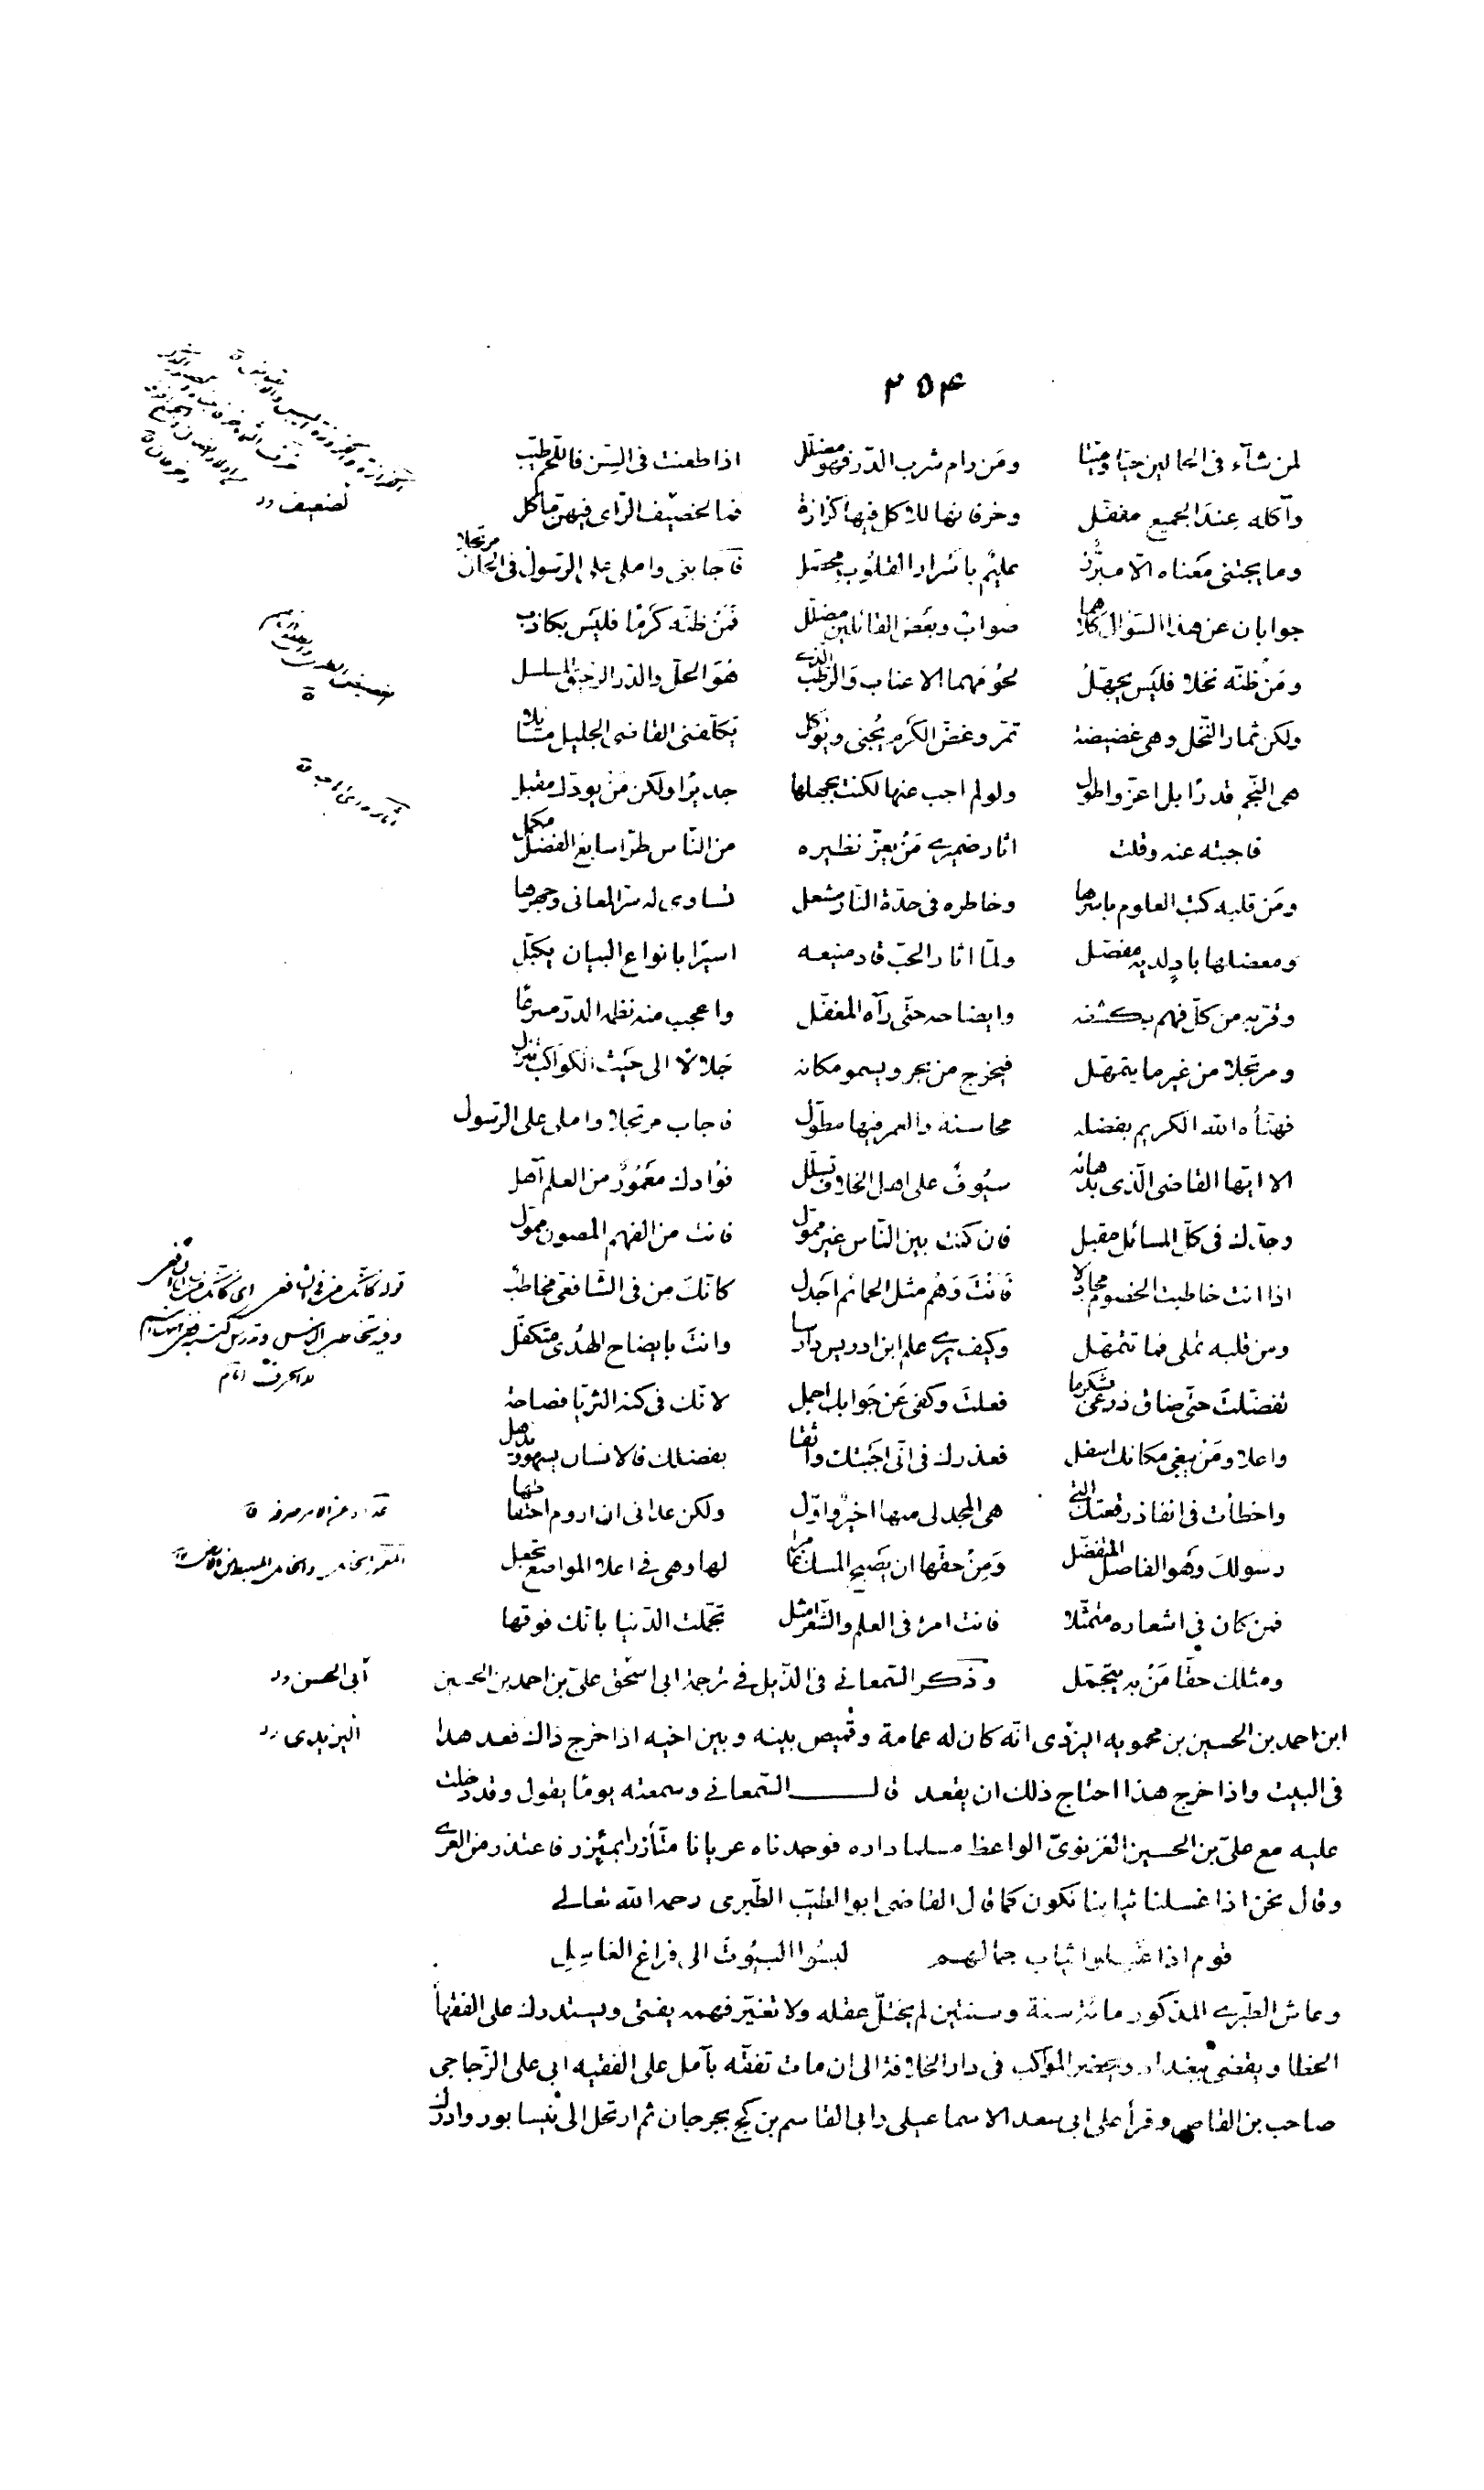 ٢٥٤
لمن شآء فى الحالين حيّا وميّتا ومَن رام شرب الدّر فهو مضلّل اذا طعنت فى السّن فاللّحم طيّب
وآكله عِندَ الجميع مغفّل وخرفانها للاكل فيها كزازة فما لحصّيف الرّاى فيهنّ مأكل
وما يجتنى معناه الا مبرّز عليمٌ باسرار القلوب محصّل فاجابنى واملى على الرسول فى الحال مرتجلا
جوابان عن هذا السّؤال كلاهما صوابٌ وبعض القائلين مضلّل فمَنْ ظنّه كَرمًا فليَس بكاذب
ومَن ظنّه نخلا فليَس يجهّلُ لحومهما الاعناب وَالرّطب الّذى هُوَ الحلّ والدّر الرحيق المسلسل
ولكن ثمار النّخل وهى غضيضة تمّر وغضّ الكَرم يُجنى ويؤكل يكلّفنى القاضى الجليل مسائلا
هى النّجم قدرًا بل اعزّ واطول ولو لم اجب عنها لكنت بجهلها جديرًا ولكن مَنْ يودّك مقبل
فاجبته عنه وقلت اثار ضميرى مَنْ يعزّ نظيره من النّاس طرّا سابغ الفضل مكمّل
ومَن قلبه كتب العلوم باسرها وخاطره فى حدّة النّار مشعل تساوى له سرّ المعانى وجهرها
ومعضلها بادٍ لديه مفصّل ولمّا اثار الحبّ قاد منيعه اسيرًا بانواع البيان يكبّل
وقرّبه من كلّ فهم بكشفه وايضاحه حتّى رآه المغفّل واعجب منه نظمه الدرّ مسرعًا
ومرتجلا من غير ما يتمهّل فيخرج من بحر ويسمو مكانه جَلالًا الى حَيث الكواكب تنزل
فهنّأه الله الكريم بفضله محاسنه والعمر فيها مطوّل فاجاب مرتجلا واملى على الرّسول
الا ايّها القاضى الّذى بدهاته سيُوفٌ على اهل الخلاف تسلّل فؤادك معَمُورٌ من العلم آهل
وجدّك فى كلّ المسائل مقبل فان كنت بين النّاس غير مموّل فانت من الفهم المصون مموّل
اذا انت خاطبت الخصوم مجادلا فَانْتَ وَهُم مثل الحمائم اَجدل كانّكَ مِن فى الشّافعى مخاطَبٌ
ومن قلبه تملى فما تتمهّل وكيف يرى علم ابن ادريس دارسا وانتَ بايضاح الهُدى متكفّل
تفضّلتَ حتّى ضاق ذرعى بشكر ما فعلتَ وكفى عَن جَوابك اجمل لانّك فى كنه الثريّا فصاحة
واعلا ومَن يبغى مكانك اسفل فعذرك فى انّى اجَبتك واثقا بفضلك فالانسان يسهو ويذهل
واخطأت فى انفاذ رقعتك التى هى المجد لى منها اخيرٌ واوّل ولكن عدانى ان اروم احتفاظها
رسولك وَهو الفاضل المتفضّل وَمِنْ حقّها ان يُصَبح المسك غامرًا لها وهى فى اعلا المواضع تجعل
فمن كان فى اشعاره متمثّلا فانت امرؤ فى العلم والشّعر امثل تجمّلت الدّنيا بانّك فوقها
ومثلك حقّا مَنْ به يتجمّل وذكر السّمعانى فى الذّيل فى ترجمة ابى اسحٰق علىّ بن احمد بن الحسين
ابن احمد بن الحسين بن محمويه اليزدى انّه كان له عمامة وقميص بينه وبين اخيه اذا خرج ذاك فعد هذا
فى البيت واذا خرج هذا احتاج ذلك ان يقعد قال السّمعانى وسمعته يومًا يقول وقد دخلت
عليه مع علىّ بن الحسين الغزنوىّ الواعظ مسلما داره فوجدناه عريانا متأزرا بمئزر فاعتذر من العرى
وقال نحن اذا غسلنا ثيابنا نكون كما قال القاضى ابو الطيّب الطّبرى رحمه الله تعالى
قوم اذا غسلوا ثياب جمالهم لبسُوا البيُوتَ الى فراغ الغاسِلِ
وعاش الطّبرى المذكور مائة سنة وسنتين لم يختلّ عقله ولا تغيّر فهمه يفتى ويستدرك على الفقهآ
الخطا ويقضى ببغداد ويحضر المواكب فى دار الخلافة الى ان مات تفقّه بآمل على الفقيه ابى على الزّجاجى
صاحب بن القاص وقرأ على ابى سعد الاسماعيلى وابى القاسم بن كج بجرجان ثم ارتحل الى نيسابور وادرك
لضعيف
أبى الحسن
اليزيدى